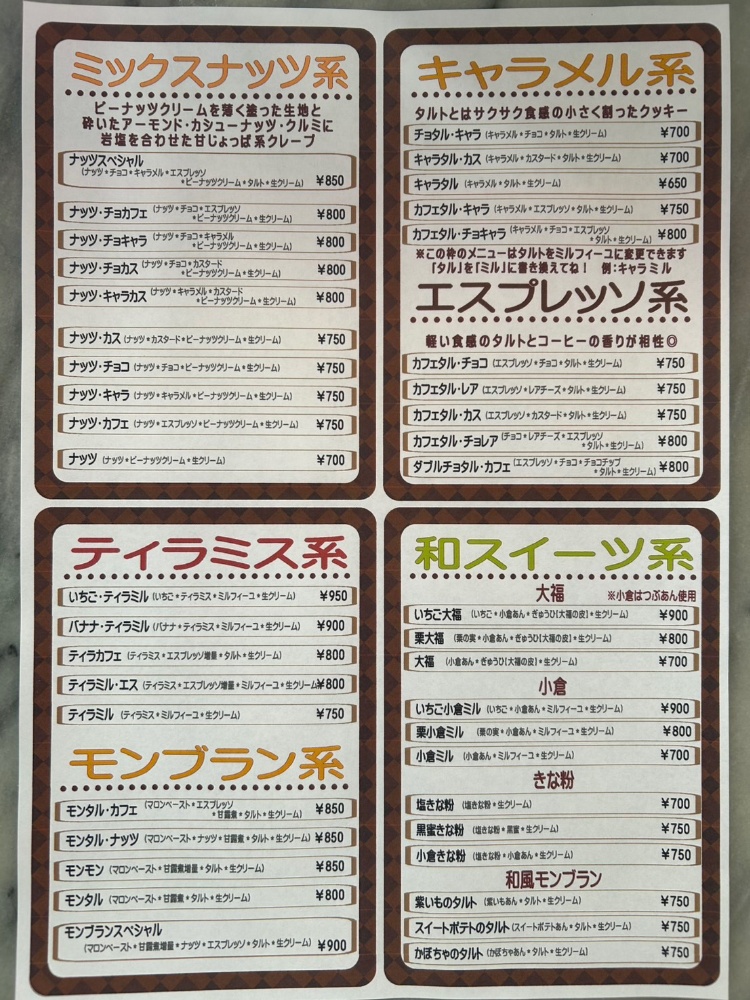 ミックスナッツ系
ピーナッツクリームを薄く塗った生地と
砕いたアーモンド・カシューナッツ・クルミに
岩塩を合わせた甘じょっぱ系クレープ
ナッツスペシャル
(ナッツ*チョコ*キャラメル*エスプレッソ
*ピーナッツクリーム*タルト*生クリーム) ¥850
ナッツ・チョカフェ (ナッツ*チョコ*エスプレッソ
*ピーナッツクリーム*生クリーム) ¥800
ナッツ・チョキャラ (ナッツ*チョコ*キャラメル
*ピーナッツクリーム*生クリーム) ¥800
ナッツ・チョカス (ナッツ*チョコ*カスタード
*ピーナッツクリーム*生クリーム) ¥800
ナッツ・キャラカス (ナッツ*キャラメル*カスタード
*ピーナッツクリーム*生クリーム) ¥800
ナッツ・カス (ナッツ*カスタード*ピーナッツクリーム*生クリーム) ¥750
ナッツ・チョコ (ナッツ*チョコ*ピーナッツクリーム*生クリーム) ¥750
ナッツ・キャラ (ナッツ*キャラメル*ピーナッツクリーム*生クリーム) ¥750
ナッツ・カフェ (ナッツ*エスプレッソ*ピーナッツクリーム*生クリーム) ¥750
ナッツ (ナッツ*ピーナッツクリーム*生クリーム) ¥700
キャラメル系
タルトとはサクサク食感の小さく割ったクッキー
チョタル・キャラ (キャラメル*チョコ*タルト*生クリーム) ¥700
キャラタル・カス (キャラメル*カスタード*タルト*生クリーム) ¥700
キャラタル (キャラメル*タルト*生クリーム) ¥650
カフェタル・キャラ (キャラメル*エスプレッソ*タルト*生クリーム) ¥750
カフェタル・チョキャラ (キャラメル*チョコ*エスプレッソ
*タルト*生クリーム) ¥800
※この枠のメニューはタルトをミルフィーユに変更できます
「タル」を「ミル」に書き換えてね! 例:キャラミル
エスプレッソ系
軽い食感のタルトとコーヒーの香りが相性◎
カフェタル・チョコ (エスプレッソ*チョコ*タルト*生クリーム) ¥750
カフェタル・レア (エスプレッソ*レアチーズ*タルト*生クリーム) ¥750
カフェタル・カス (エスプレッソ*カスタード*タルト*生クリーム) ¥750
カフェタル・チョレア (チョコ*レアチーズ*エスプレッソ
*タルト*生クリーム) ¥800
ダブルチョタル・カフェ (エスプレッソ*チョコ*チョコチップ
*タルト*生クリーム) ¥800
ティラミス系
いちご・ティラミル (いちご*ティラミス*ミルフィーユ*生クリーム) ¥950
バナナ・ティラミル (バナナ*ティラミス*ミルフィーユ*生クリーム) ¥900
ティラカフェ (ティラミス*エスプレッソ増量*タルト*生クリーム) ¥800
ティラミル・エス (ティラミス*エスプレッソ増量*ミルフィーユ*生クリーム) ¥800
ティラミル (ティラミス*ミルフィーユ*生クリーム) ¥750
モンブラン系
モンタル・カフェ (マロンペースト*エスプレッソ
*甘露煮*タルト*生クリーム) ¥850
モンタル・ナッツ (マロンペースト*ナッツ*甘露煮*タルト*生クリーム) ¥850
モンモン (マロンペースト*甘露煮増量*タルト*生クリーム) ¥850
モンタル (マロンペースト*甘露煮*タルト*生クリーム) ¥800
モンブランスペシャル
(マロンペースト*甘露煮増量*ナッツ*エスプレッソ*タルト*生クリーム) ¥900
和スイーツ系
大福 ※小倉はつぶあん使用
いちご大福 (いちご*小倉あん*ぎゅうひ[大福の皮]*生クリーム) ¥900
栗大福 (栗の実*小倉あん*ぎゅうひ[大福の皮]*生クリーム) ¥800
大福 (小倉あん*ぎゅうひ[大福の皮]*生クリーム) ¥700
小倉
いちご小倉ミル (いちご*小倉あん*ミルフィーユ*生クリーム) ¥900
栗小倉ミル (栗の実*小倉あん*ミルフィーユ*生クリーム) ¥800
小倉ミル (小倉あん*ミルフィーユ*生クリーム) ¥700
きな粉
塩きな粉 (塩きな粉*生クリーム) ¥700
黒蜜きな粉 (塩きな粉*黒蜜*生クリーム) ¥750
小倉きな粉 (塩きな粉*小倉あん*生クリーム) ¥750
和風モンブラン
紫いものタルト (紫いもあん*タルト*生クリーム) ¥750
スイートポテトのタルト (スイートポテトあん*タルト*生クリーム) ¥750
かぼちゃのタルト (かぼちゃあん*タルト*生クリーム) ¥750